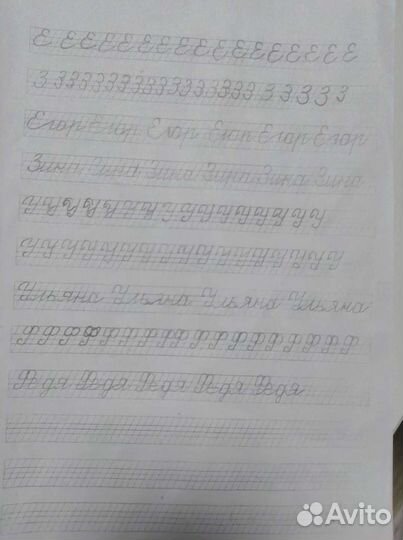 Е Е Е Е Е Е Е Е Е Е Е Е Е Е Е Е Е Е
З З З З З З З З З З З З З З З З З З З З З
Егор Егор Егор Егор Егор Егор
Зина Зина Зина Зина Зина Зина
У У У У У У У У У У У У У У У У
У У У У У У У У У У У У У У У У
Ульяна Ульяна Ульяна Ульяна
Ф Ф Ф Ф Ф Ф Ф Ф Ф Ф Ф Ф Ф Ф Ф Ф
Федя Федя Федя Федя Федя
Avito